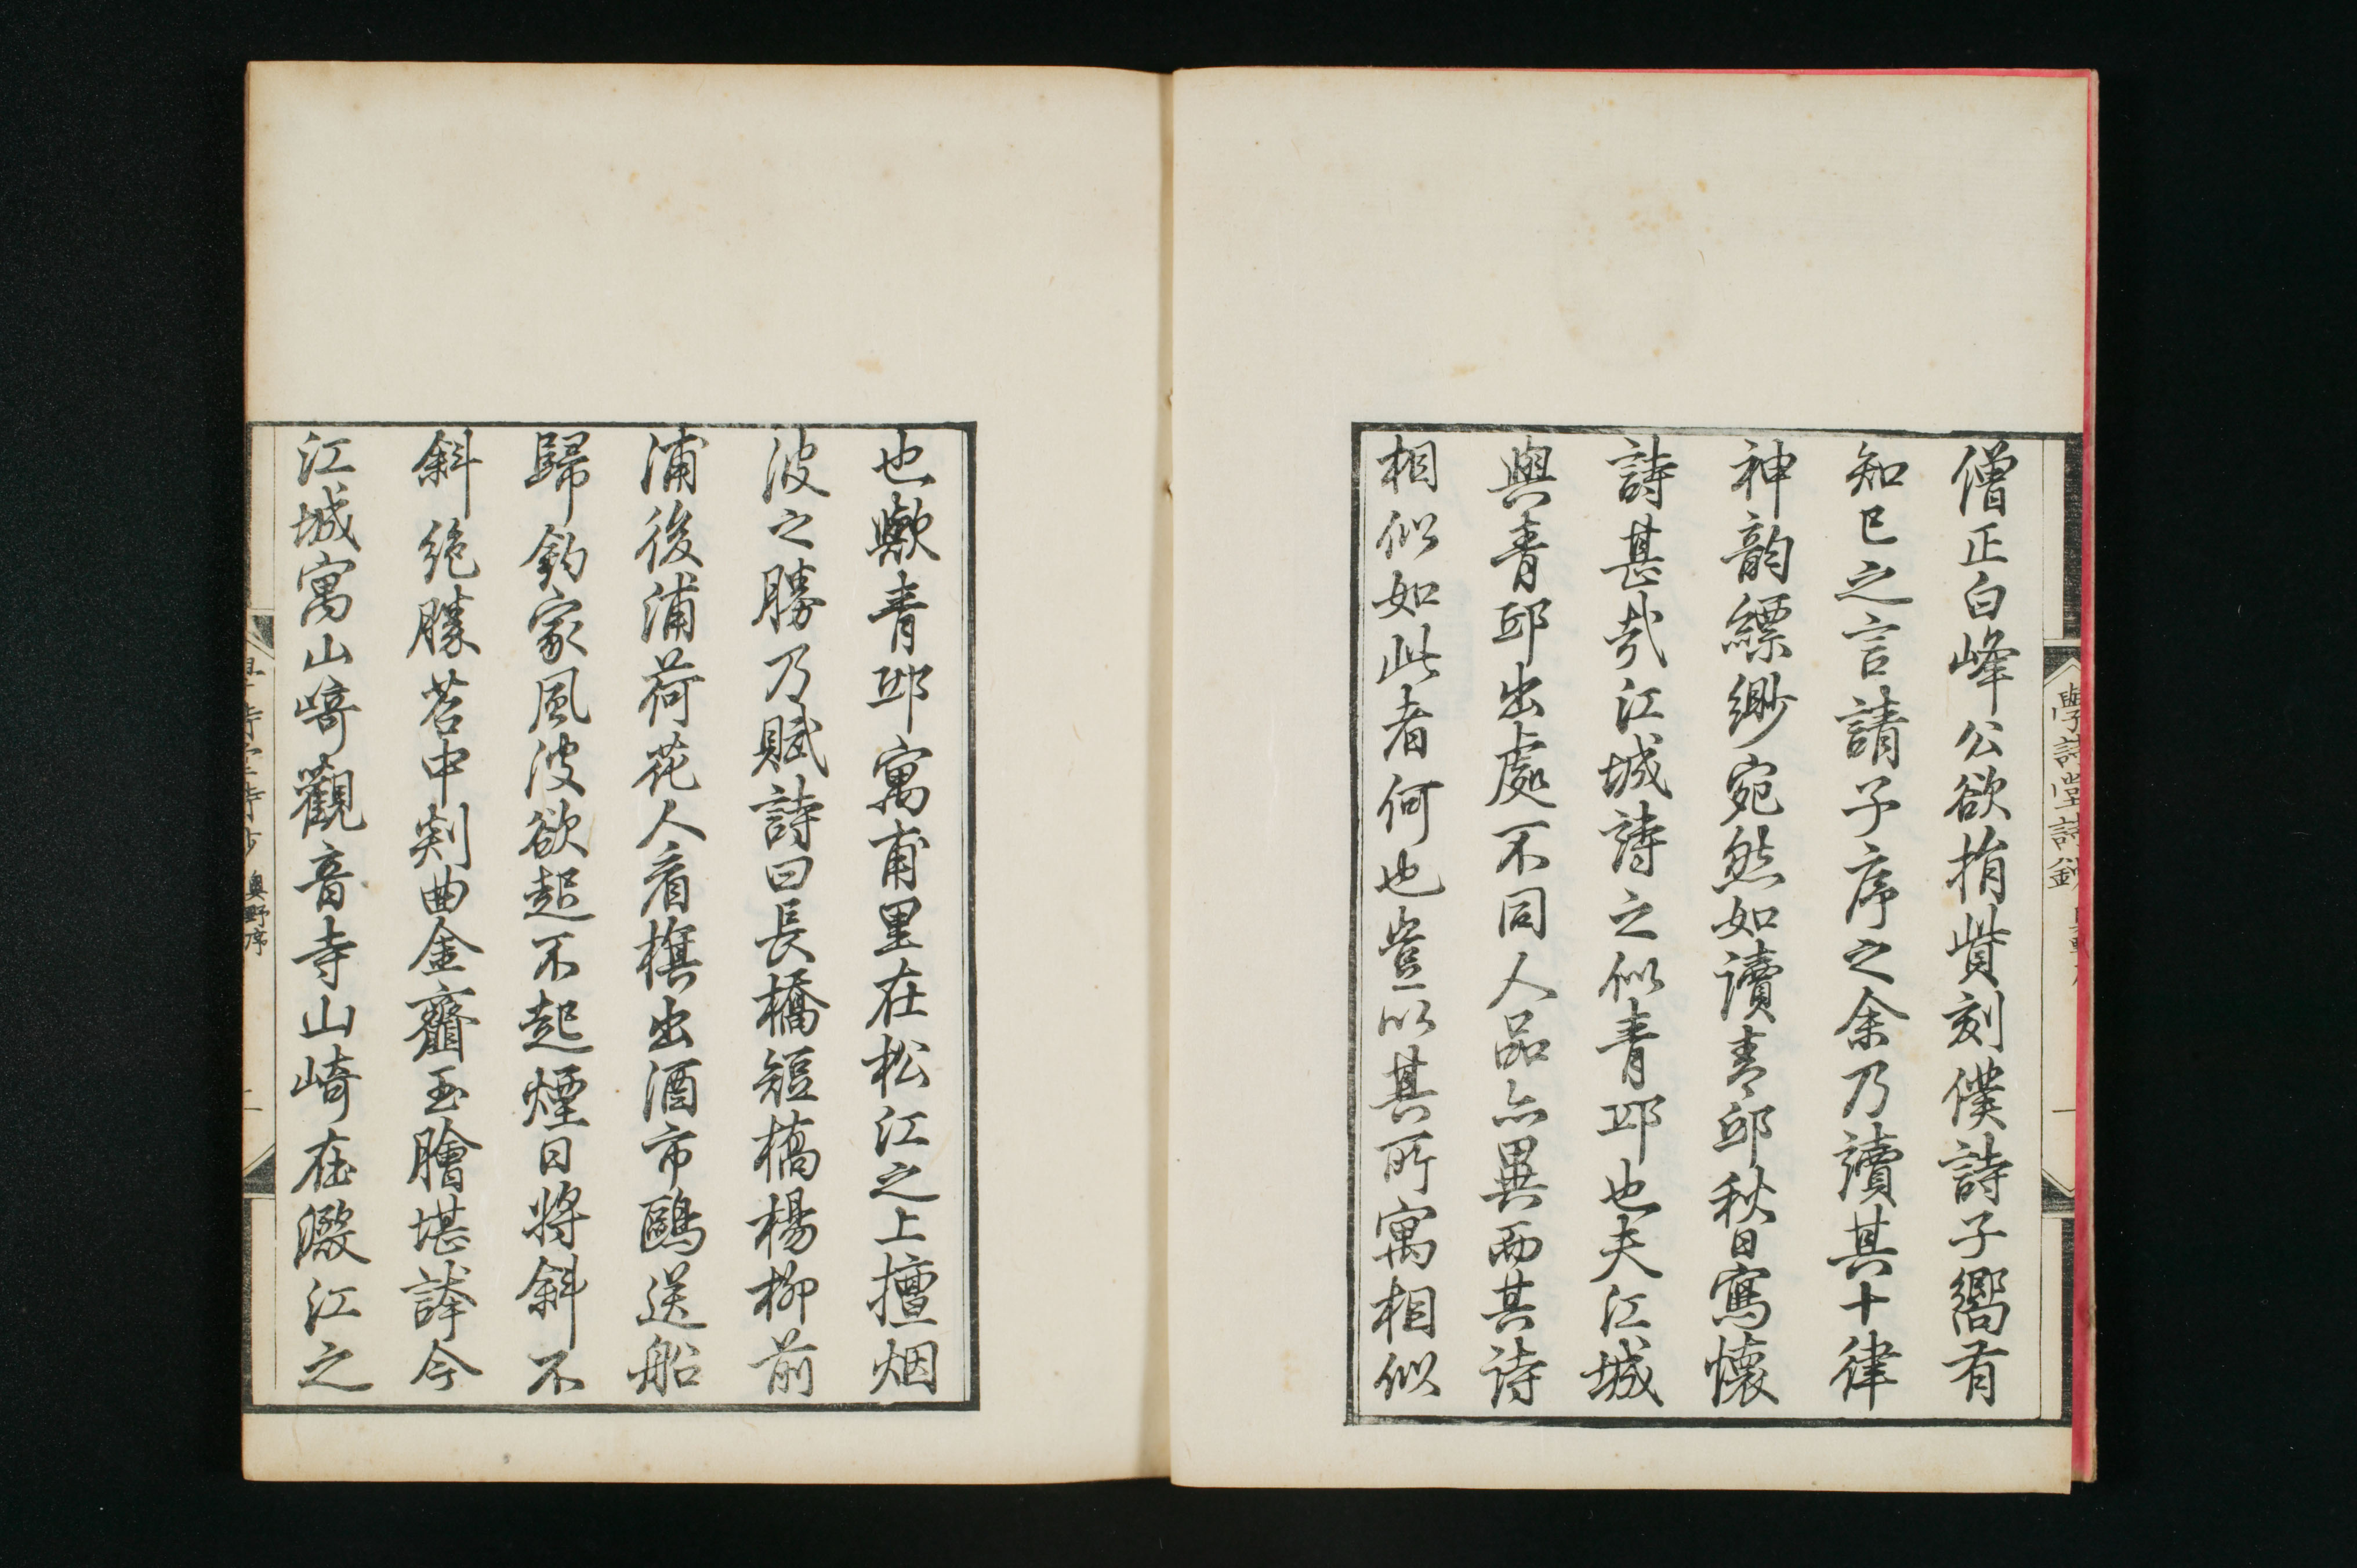 僧正白峰公欲捐貲刻僕詩子嚮有
知已之言請子序之余乃讀其十律
神韵縹緲宛然如讀青邱秋日寫懷
詩甚哉江城詩之似青邱也夫江城
與青邱出處不同人品亦異而其詩
相似如此者何也豈以其所寓相似
學詩堂詩鈔
一
也歟青邱寓甫里在松江之上擅烟
波之勝乃賦詩曰長橋短橋楊柳前
浦後浦荷花人看旗出酒市鷗送船
歸釣家風波欲起不起煙日將斜不
斜絶勝苕中剡曲金虀玉膾堪誇今
江城寓山崎觀音寺山崎在澱江之
奧野序
二